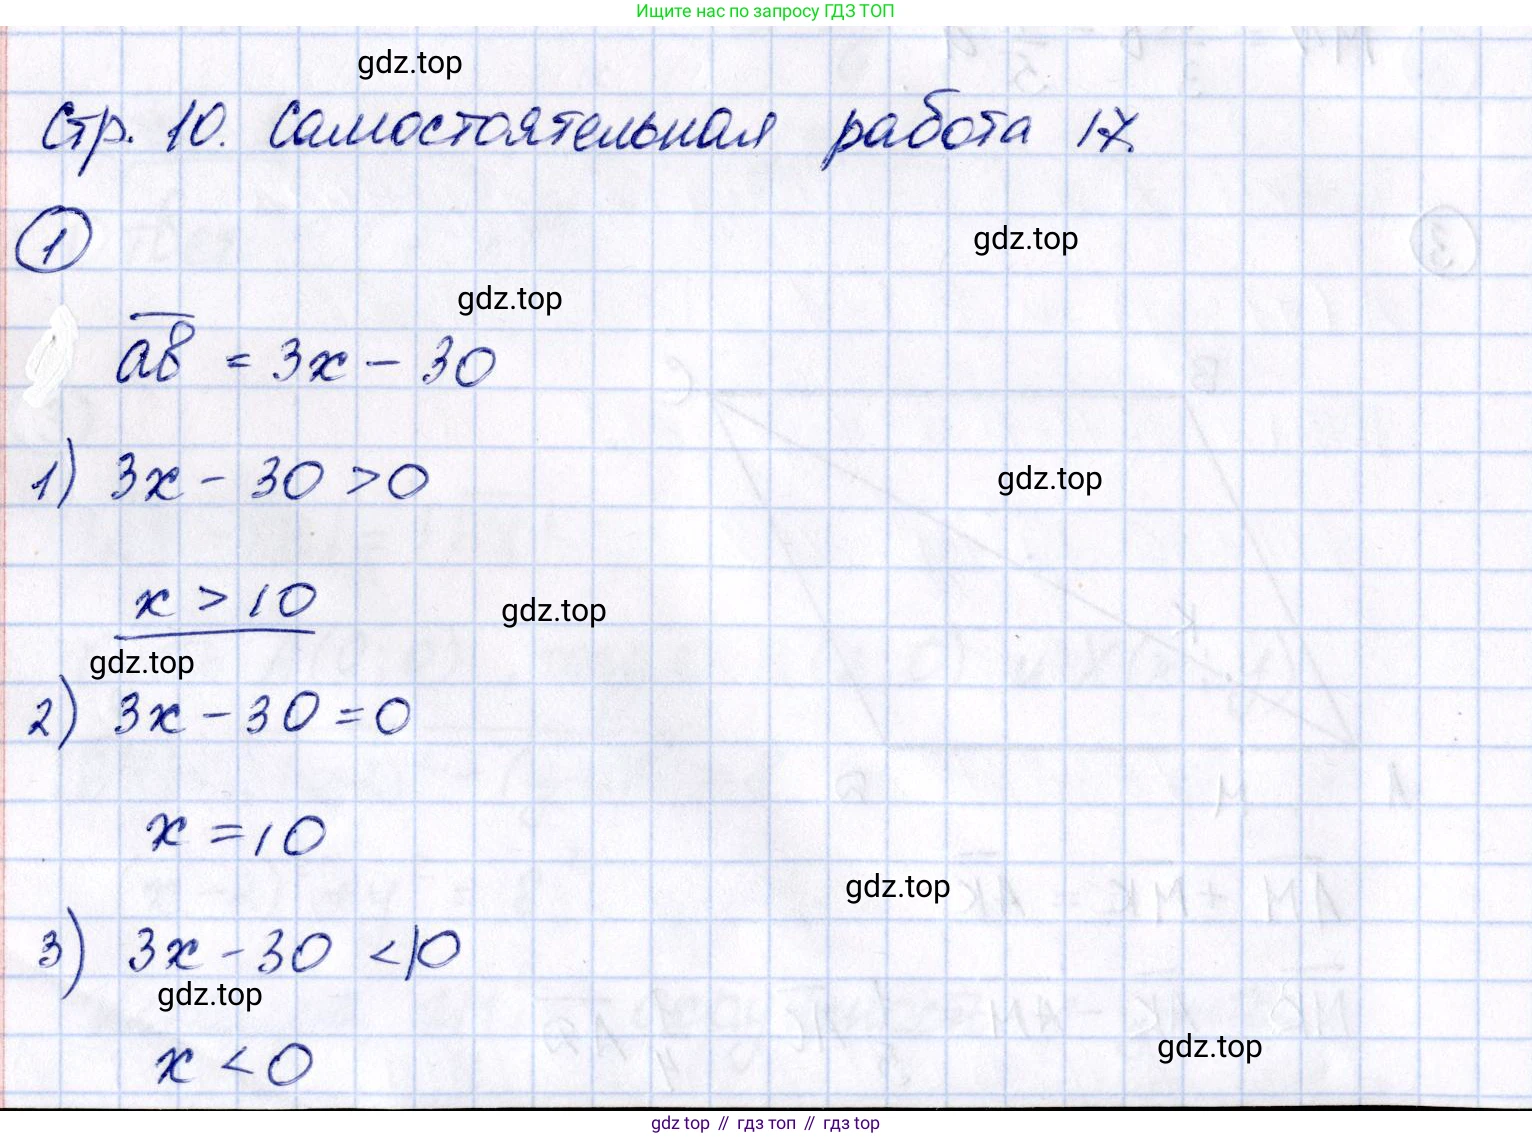 Ищите нас по запросу ГДЗ ТОП
gdz.top
Стр. 10. Самостоятельная работа 17.
1
gdz.top
gdz.top
ав = 3x - 30
1) 3x - 30 > 0
gdz.top
x > 10
gdz.top
gdz.top
2) 3x - 30 = 0
x = 10
gdz.top
3) 3x - 30 < 10
gdz.top
gdz.top
x < 0
gdz top // гдз топ // гдз top